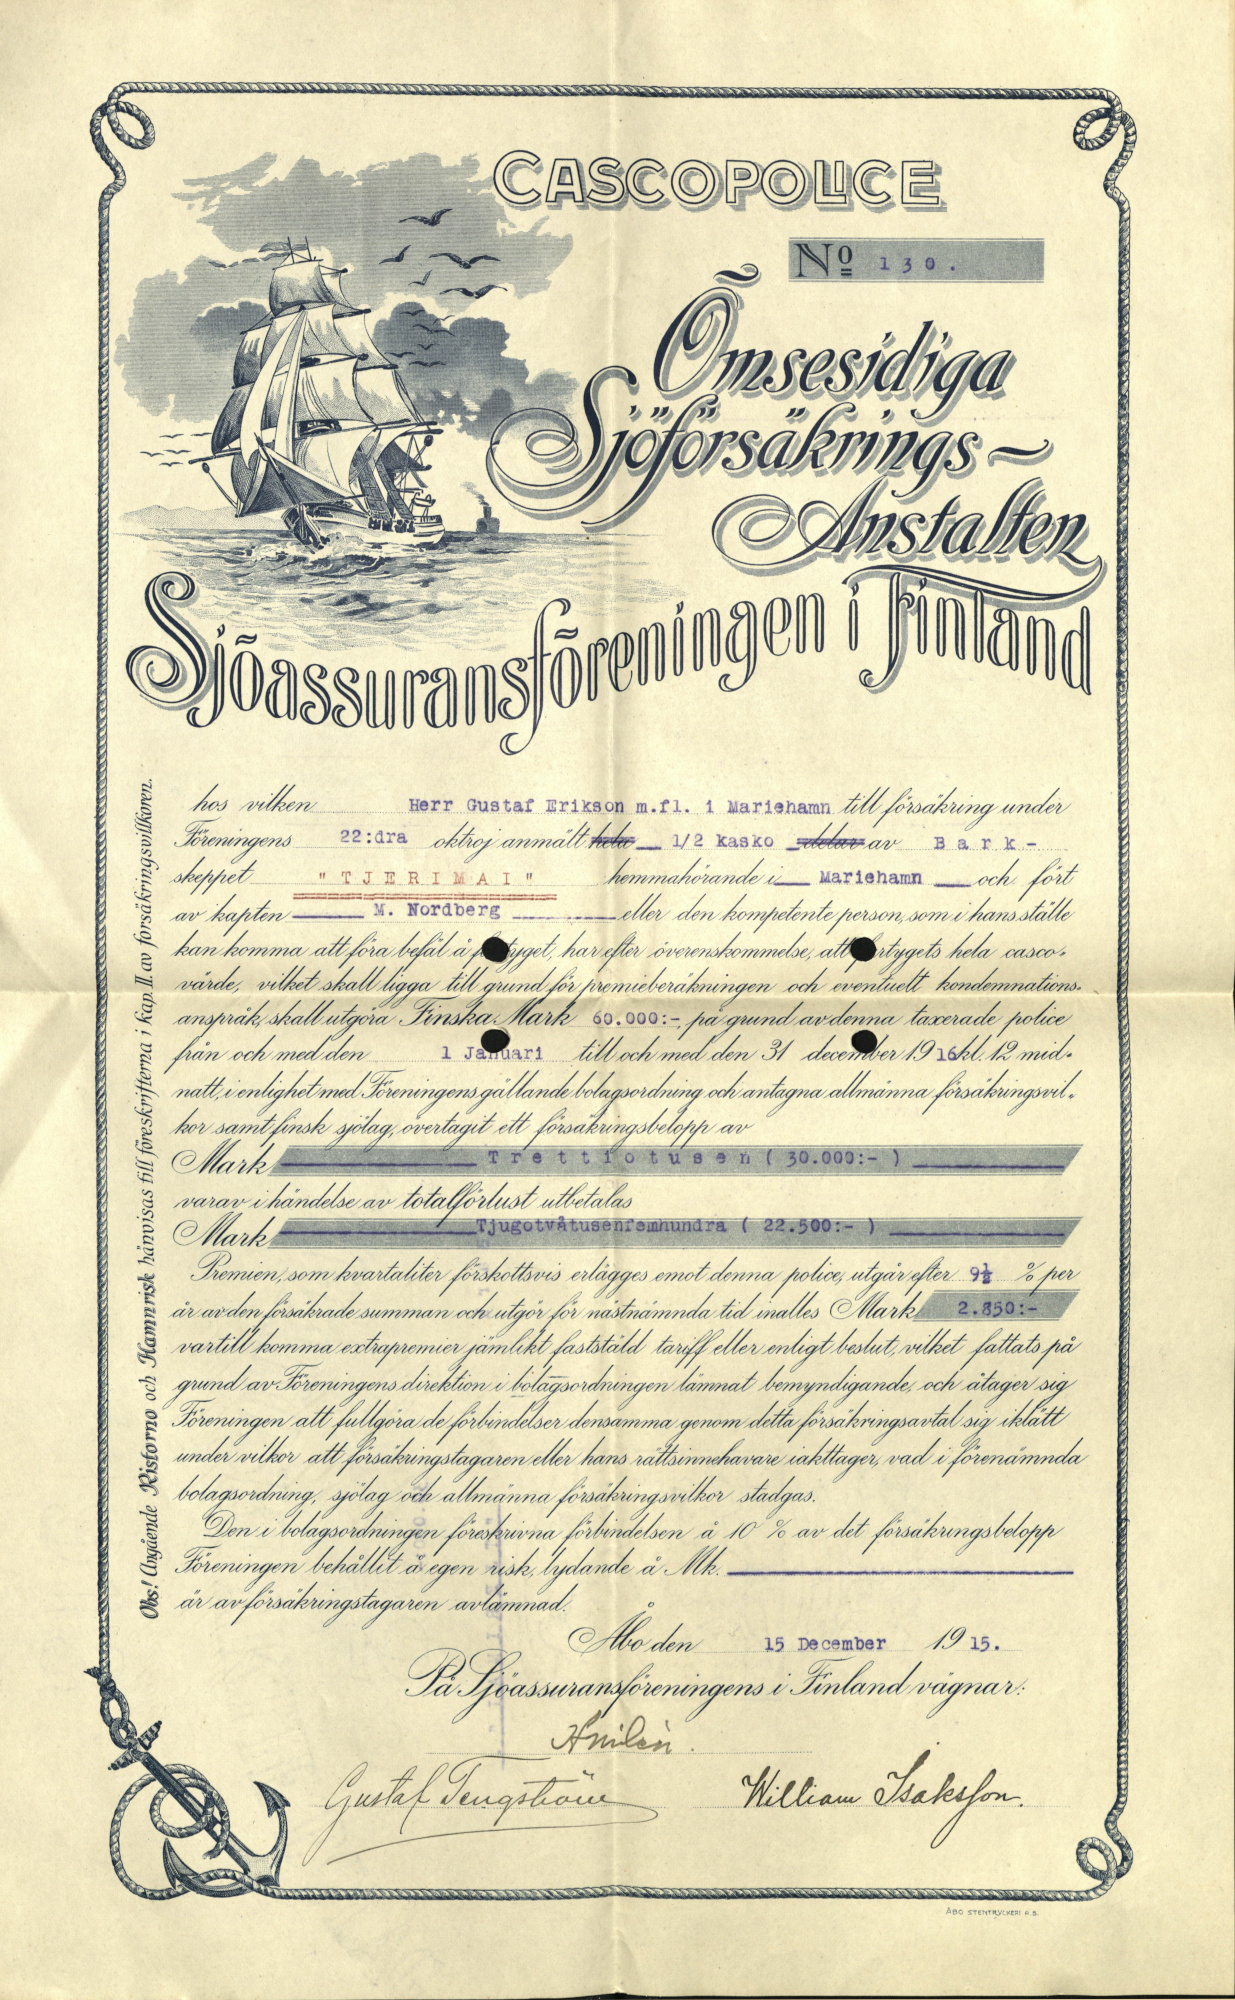 CASCOPOLICE
No 130.
Ömsesidiga
Sjöförsäkrings-
Anstalten
Sjöassuransföreningen i Finland
hos vilken Herr Gustaf Erikson m.fl. i Mariehamn till försäkring under
Föreningens 22:dra oktroj anmält hela 1/2 kasko delar av Bark-
skeppet "TJERIMAI" hemmahörande i Mariehamn och fört
av kapten M. Nordberg eller den kompetente person, som i hans ställe
kan komma att föra befäl å fartyget, har efter överenskommelse, att fartygets hela casco-
värde, vilket skall ligga till grund för premieberäkningen och eventuelt kondemnations-
anspråk, skall utgöra Finska Mark 60.000:-, på grund av denna taxerade police
från och med den 1 Januari till och med den 31 december 1916 kl. 12 mid-
natt, i enlighet med Föreningens gällande bolagsordning och antagna allmänna försäkringsvil-
kor samt finsk sjölag, övertagit ett försäkringsbelopp av
Mark Trettiotusen (30.000:-)
varav i händelse av totalförlust utbetalas
Mark Tjugotvåtusenfemhundra (22.500:-)
Premien, som kvartaliter förskottsvis erlägges emot denna police, utgår efter 9½ % per
år av den försäkrade summan och utgör för nästnämnda tid inalles Mark 2.850:-
vartill komma extrapremier jämlikt fastställd tariff eller enligt beslut, vilket fattats på
grund av Föreningens direktion i bolagsordningen lämnat bemyndigande, och åtager sig
Föreningen att fullgöra de förbindelser densamma genom detta försäkringsavtal sig iklätt
under vilkor att försäkringstagaren eller hans rättsinnehavare iakttager, vad i förenämnda
bolagsordning, sjölag och allmänna försäkringsvilkor stadgas.
Den i bolagsordningen föreskrivna förbindelsen å 10 % av det försäkringsbelopp
Föreningen behållit å egen risk, lydande å Mk.
är av försäkringstagaren avlämnad.
Åbo den 15 December 1915.
På Sjöassuransföreningens i Finland vägnar:
Gustaf Tengström William Isaksson.
Obs! Angående Ristorno och Hamnrisk hänvisas till föreskrifterna i Kap. II. av försäkringsvillkoren.
ÅBO STENTRYCKERI A.B.